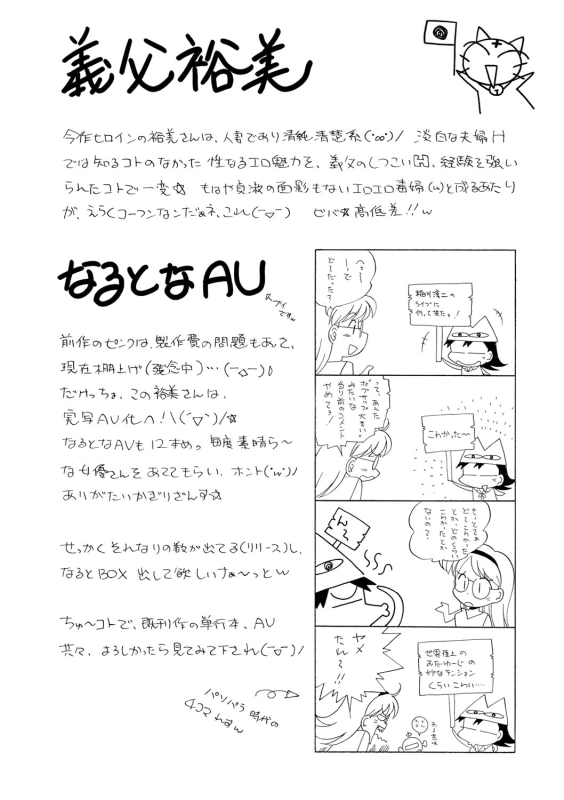 義父裕美
今作ヒロインの裕美さんは、人妻であり清純清楚系(°∞°)/ 淡白な夫婦H
では知るコトのなかった 性なるエロ魅力を、義父のしつこい
られたコトで一変☆ もはや貞淑の面影もないエロエロ毒婦(w)と成るあたり
が、えらくコーフンなンだぁネ、これ(ーoー) ビバ☆高低差!!w
なるとなAU
前作のピンクは、製作費の問題もあって、
現在棚上げ(残念中)…(ー△ー)
だけっちょ、この裕美さんは、
実写AV化へ!\(´▽`)/☆
なるとなAVも12本め。毎度素晴ら〜
な女優さんをあててもらい、ホント('w')/
ありがたいかぎりざんす☆
せっかくそれなりの数が出てる(リリース)し、
なるとBOX 出して欲しいなぁ〜っとw
ちゅ〜コトで、既刊作の単行本、AU
共々、よろしかったら見てみて下され(ー▽ー)/
パソパラ時代の
4コマ
へぇー
ーって
どーだった?
稲川淳二の
ライブに
行って来たヨ!
て、あんた
みたいな
当り前のコメント
やめてよ!
こわかった〜
もっとさぁ
どーこわかった
とか、どのくらい
こわかったとか
ないの?
ん〜
世界陸上の
おだゆーじの
妙なテンション
くらいこわい…
ヤメ
たれ〜!!
ある意味